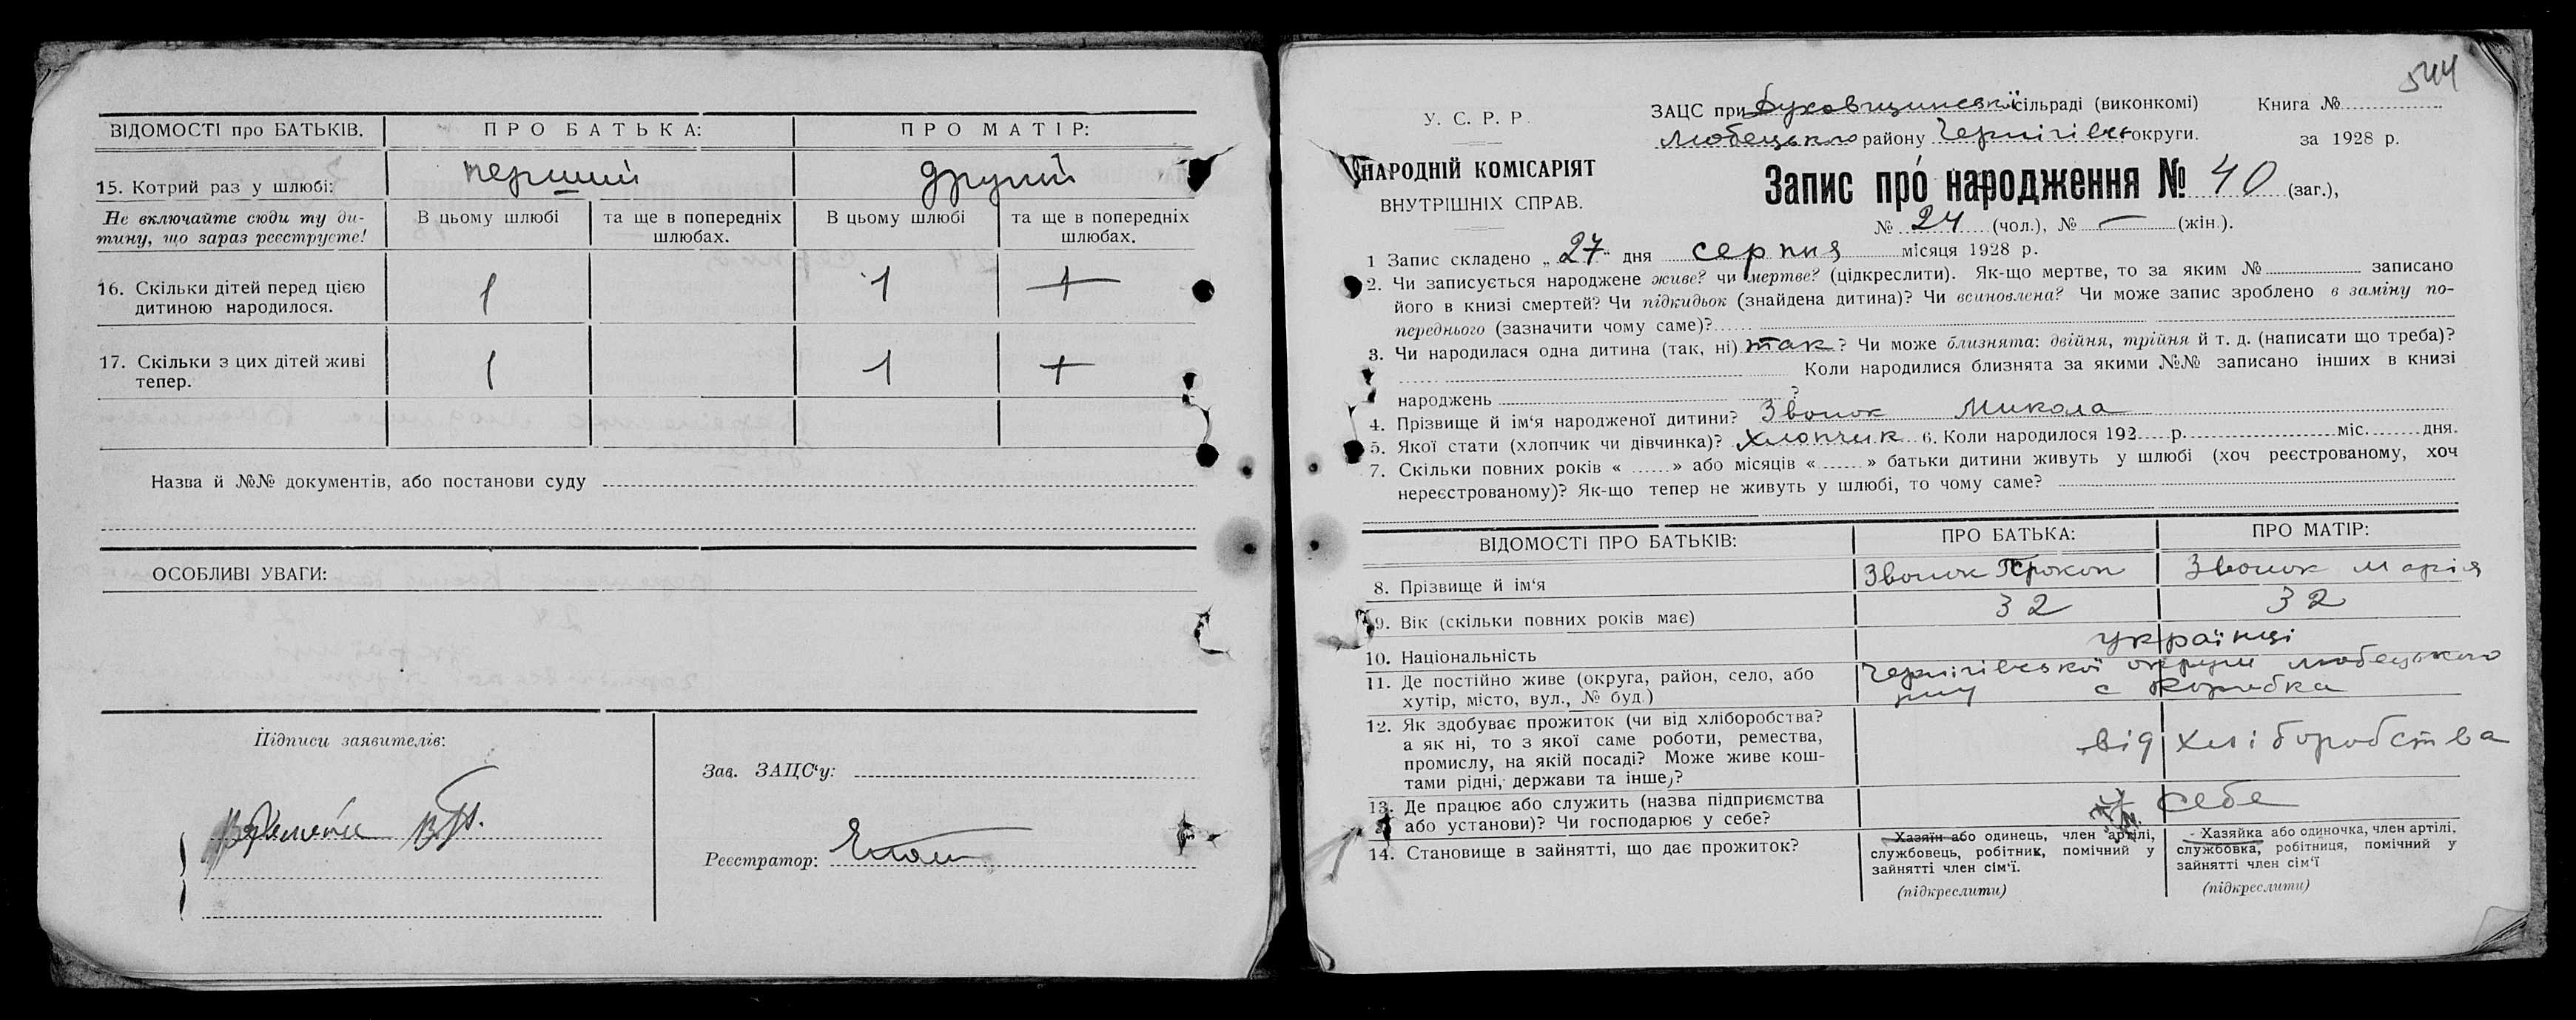 ВІДОМОСТІ про БАТЬКІВ. ПРО БАТЬКА: ПРО МАТІР:
15. Котрий раз у шлюбі: перший другий
Не включайте сюди ту ди- В цьому шлюбі та ще в попередніх В цьому шлюбі та ще в попередніх
тину, що зараз реєструєте! шлюбах. шлюбах.
16. Скільки дітей перед цією 1 1
дитиною народилося.
17. Скільки з цих дітей живі 1 1
тепер.
Назва й №№ документів, або постанови суду
ОСОБЛИВІ УВАГИ:
Підписи заявителів:
Зав. ЗАЦС'у:
Реєстратор:
544
У. С. Р. Р.
НАРОДНІЙ КОМІСАРІЯТ
ВНУТРІШНІХ СПРАВ.
ЗАЦС при сільраді (виконкомі) Книга №
Любецького району Чернігівськ округи. за 1928 р.
Запис про народження № 40 (заг.),
№ 24 (чол.), № — (жін.).
1 Запис складено „27" дня серпня місяця 1928 р.
2. Чи записується народжене живе? чи мертве? (цідкреслити). Як-що мертве, то за яким № записано
його в книзі смертей? Чи підкидьок (знайдена дитина)? Чи всиновлена? Чи може запис зроблено в заміну по-
переднього (зазначити чому саме)?
3. Чи народилася одна дитина (так, ні) так? Чи може близнята: двійня, трійня й т. д. (написати що треба)?
Коли народилися близнята за якими №№ записано інших в книзі
народжень ?
4. Прізвище й ім'я народженої дитини? Звонок Микола
5. Якої стати (хлопчик чи дівчинка)? хлопчик 6. Коли народилося 192 р. міс. дня.
7. Скільки повних років « » або місяців « » батьки дитини живуть у шлюбі (хоч реєстрованому, хоч
нереєстрованому)? Як-що тепер не живуть у шлюбі, то чому саме?
ВІДОМОСТІ ПРО БАТЬКІВ: ПРО БАТЬКА: ПРО МАТІР:
8. Прізвище й ім'я Звонок Прокоп Звонок Марія
9. Вік (скільки повних років має) 32 32
10. Національність українці
11. Де постійно живе (округа, район, село, або Чернігівської округи Любецького
хутір, місто, вул., № буд.) р-ну с
12. Як здобуває прожиток (чи від хліборобства?
а як ні, то з якої саме роботи, ремества, від хліборобства
промислу, на якій посаді? Може живе кош-
тами рідні, держави та інше,)?
13. Де працює або служить (назва підприємства себе
або установи)? Чи господарює у себе?
14. Становище в зайнятті, що дає прожиток?
Хазяїн або одинець, член артілі,
службовець, робітник, помічний у
зайнятті член сім'ї.
(підкреслити)
Хазяйка або одиночка, член артілі,
службовка, робітниця, помічний у
зайнятті член сім'ї
(підкреслити)